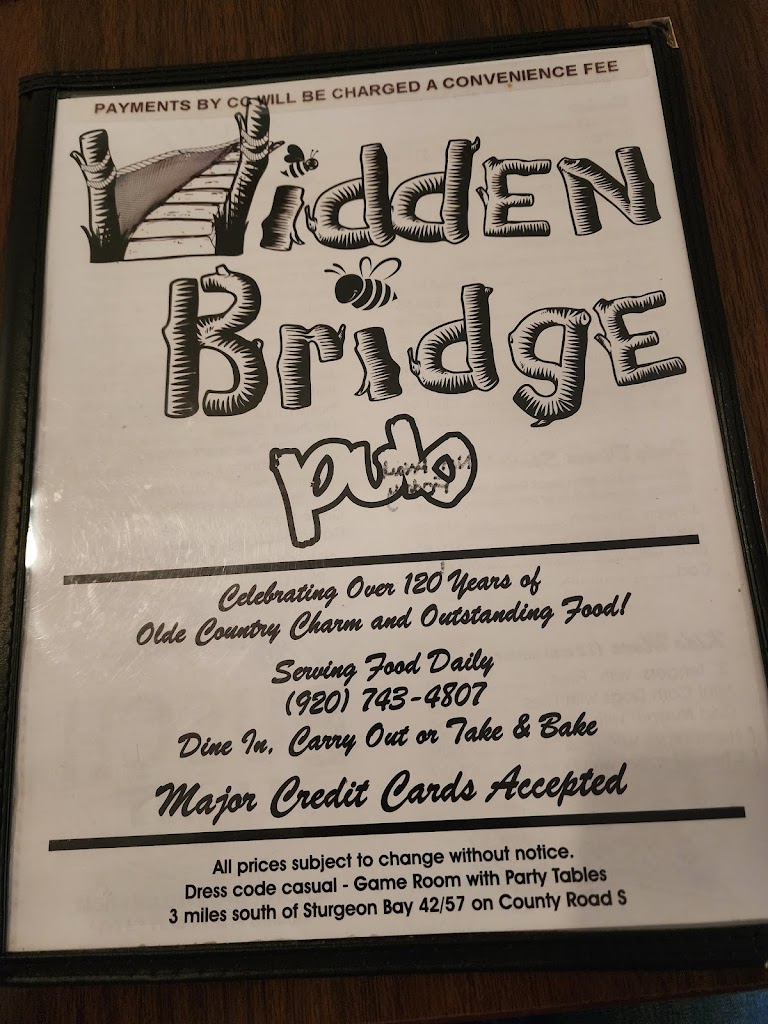 PAYMENTS BY CC WILL BE CHARGED A CONVENIENCE FEE
HiddEN
BridgE
pub
Celebrating Over 120 Years of
Olde Country Charm and Outstanding Food!
Serving Food Daily
(920) 743-4807
Dine In, Carry Out or Take & Bake
Major Credit Cards Accepted
All prices subject to change without notice.
Dress code casual - Game Room with Party Tables
3 miles south of Sturgeon Bay 42/57 on County Road S